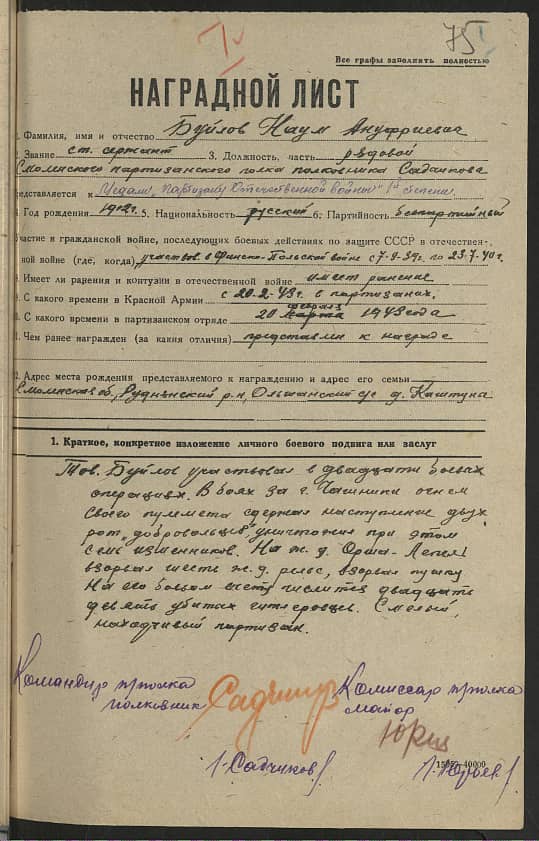 75
Все графы заполнять полностью
НАГРАДНОЙ ЛИСТ
1. Фамилия, имя и отчество Буйлов Наум Ануфриевич
2. Звание ст. сержант 3. Должность, часть рядовой
Смоленского партизанского полка полковника Садчикова
редставляется к Медали "Партизану Отечественной войны" 1й степени
4. Год рождения 1912г. 5. Национальность русский 6. Партийность беспартийный
участие в гражданской войне, последующих боевых действиях по защите СССР в отечествен-
ной войне (где, когда) участвов. в Финско-Польской войне с 7-9-39г. по 23.7.40г.
8. Имеет ли ранения и контузии в отечественной войне имеет ранение
9. С какого времени в Красной Армии с 20-2-43г. в партизанах.
февраля
10. С какого времени в партизанском отряде 20 марта 1943 года
11. Чем ранее награжден (за какия отличия) представлен к награде
12. Адрес места рождения представляемого к награждению и адрес его семьи
Смоленская об., Руднянский р-н, Ольшанский с/с д. Каштуна
1. Краткое, конкретное изложение личного боевого подвига или заслуг
Тов. Буйлов участвовал в двадцати боевых
операциях. В боях за г. Чашники огнем
своего пулемета сдержал наступление двух
рот "добровольцев", уничтожив при этом
семь изменников. На ж. д. Орша-Лепель
взорвал шесть ж. д. рельс, взорвал пушку
На его боевом счету числится двадцать
девять убитых гитлеровцев. Смелый,
находчивый партизан.
Командир п/полка
полковник
Комиссар п/полка
майор
/Садчиков/
/Юрьев/